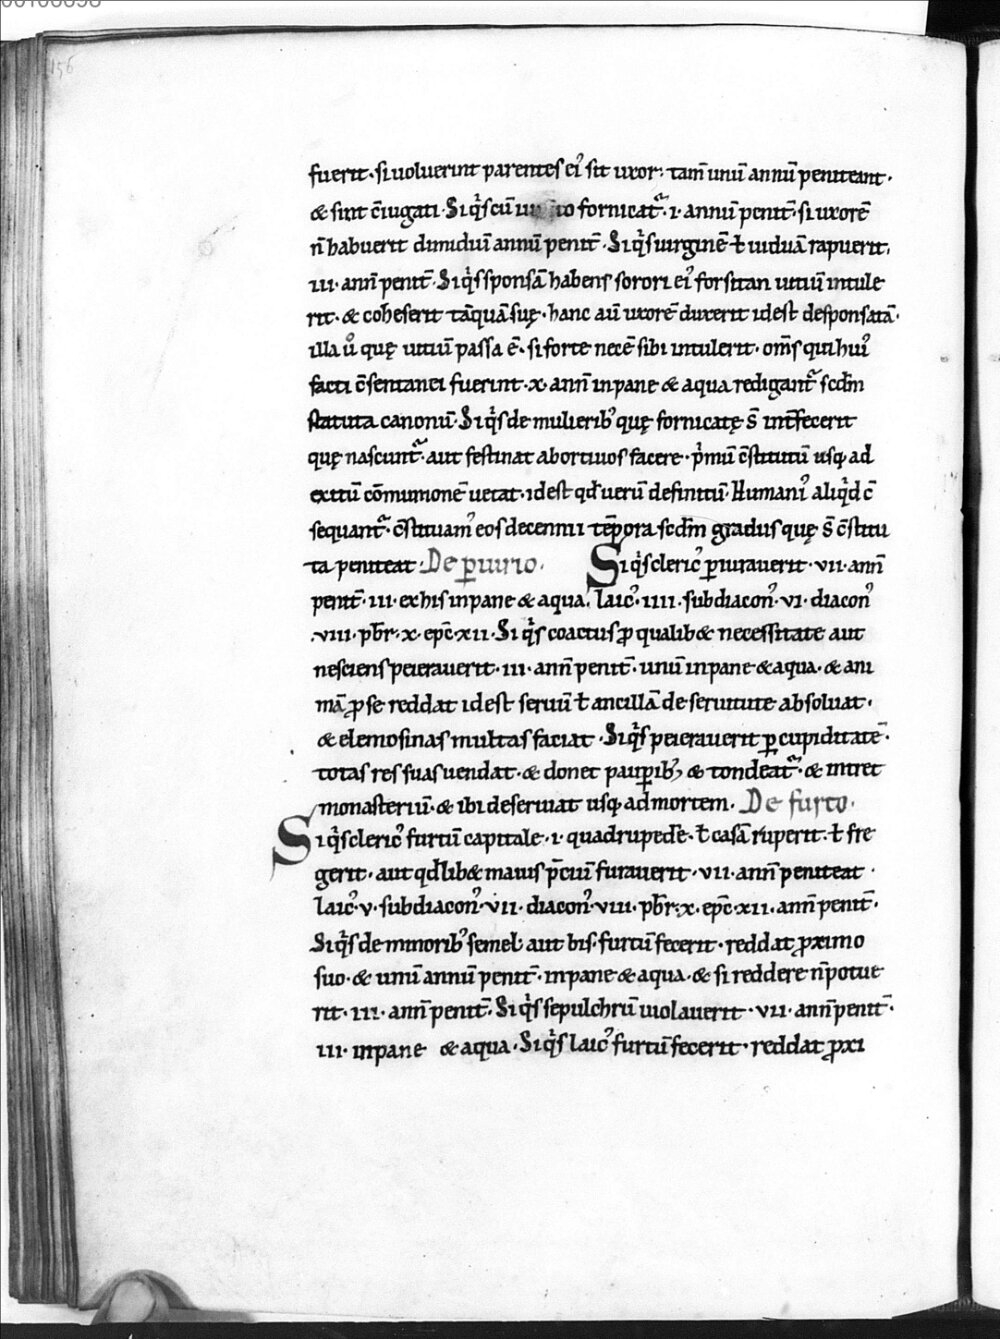 156
fuerit· si uoluerint parentes ei᾽ sit uxor· tam̄ unū annū peniteant·
& sint c̄iugati· Siq̇s cū fornicat᷑· i· annū penit̄· si uxorē
n̄ habuerit dimiduī annū penit̄· Siq̇s uirginē ł uiduā rapuerit,
iii· ann̄ penit̄· Siq̇s sponsā habens sorori ei᾽ forsitan uitiū intule
rit· & coheserit tāquā suę· hanc aū uxorē duxerit idest desponsatā·
illa u̇ quę uitiū passa ē· si forte necē sibi intulerit· om̄s qui hui᾽
facti c̄sentanei fuerint· x· ann̄ in pane & aqua redigant᷑ scd̄m
statuta canonū· Siq̇s de mulierib᾽ quę fornicatę s̄ int̄fecerit
quę nascunt᷑· aut festinat abortiuos facere· ṗmū c̄stitutū usq; ad
exitū cōmunionē uetat· idest qđ uerū definitū· Humani᾽ aliq̇d c̄
sequant᷑· c̄stituam᾽ eos decennii tēpora scd̄m gradus quę s̄ c̄stitu
ta peniteat· De ꝑiurio· Siq̇s cleric᾽ ꝑiurauerit· vii· ann̄
penit̄· iii· ex his in pane & aqua· laic᾽· iiii· subdiacon᾽· vi· diacon᾽
·viii· pb̄r· x· ep̄c· xii· Siq̇s coactus ꝓ qualib& necessitate aut
nesciens peierauerit· iii· ann̄ penit̄· unū in pane & aqua· & ani
mā ꝓ se reddat idest seruū ł ancillā de seruitute absoluat·
& elemosinas multas faciat· Siq̇s peierauerit ꝑ cupiditatē·
totas res suas uendat· & donet pauꝑib᾽, & tondeat᷑· & intret
monasteriū· & ibi deseruiat usq; ad mortem· De furto·
Siq̇s cleric᾽ furtū capitale· i· quadrupedē· ł casā ruperit· ł fre
gerit· aut qđlib& maius p̄ciū furauerit· vii· ann̄ peniteat·
laic᾽· v· subdiacon᾽· vii· diacon᾽· viii· pb̄r· x· ep̄c· xii· ann̄ penit̄·
Siq̇s de minorib᾽ semel aut bis furtū fecerit· reddat ꝓximo
suo· & unū annū penit̄· in pane & aqua· & si reddere n̄ potue
rit· iii· ann̄ penit̄· Siq̇s sepulchrū uiolauerit· vii· ann̄ penit̄·
iii· in pane & aqua· Siq̇s laic᾽ furtū fecerit· reddat ꝓxi